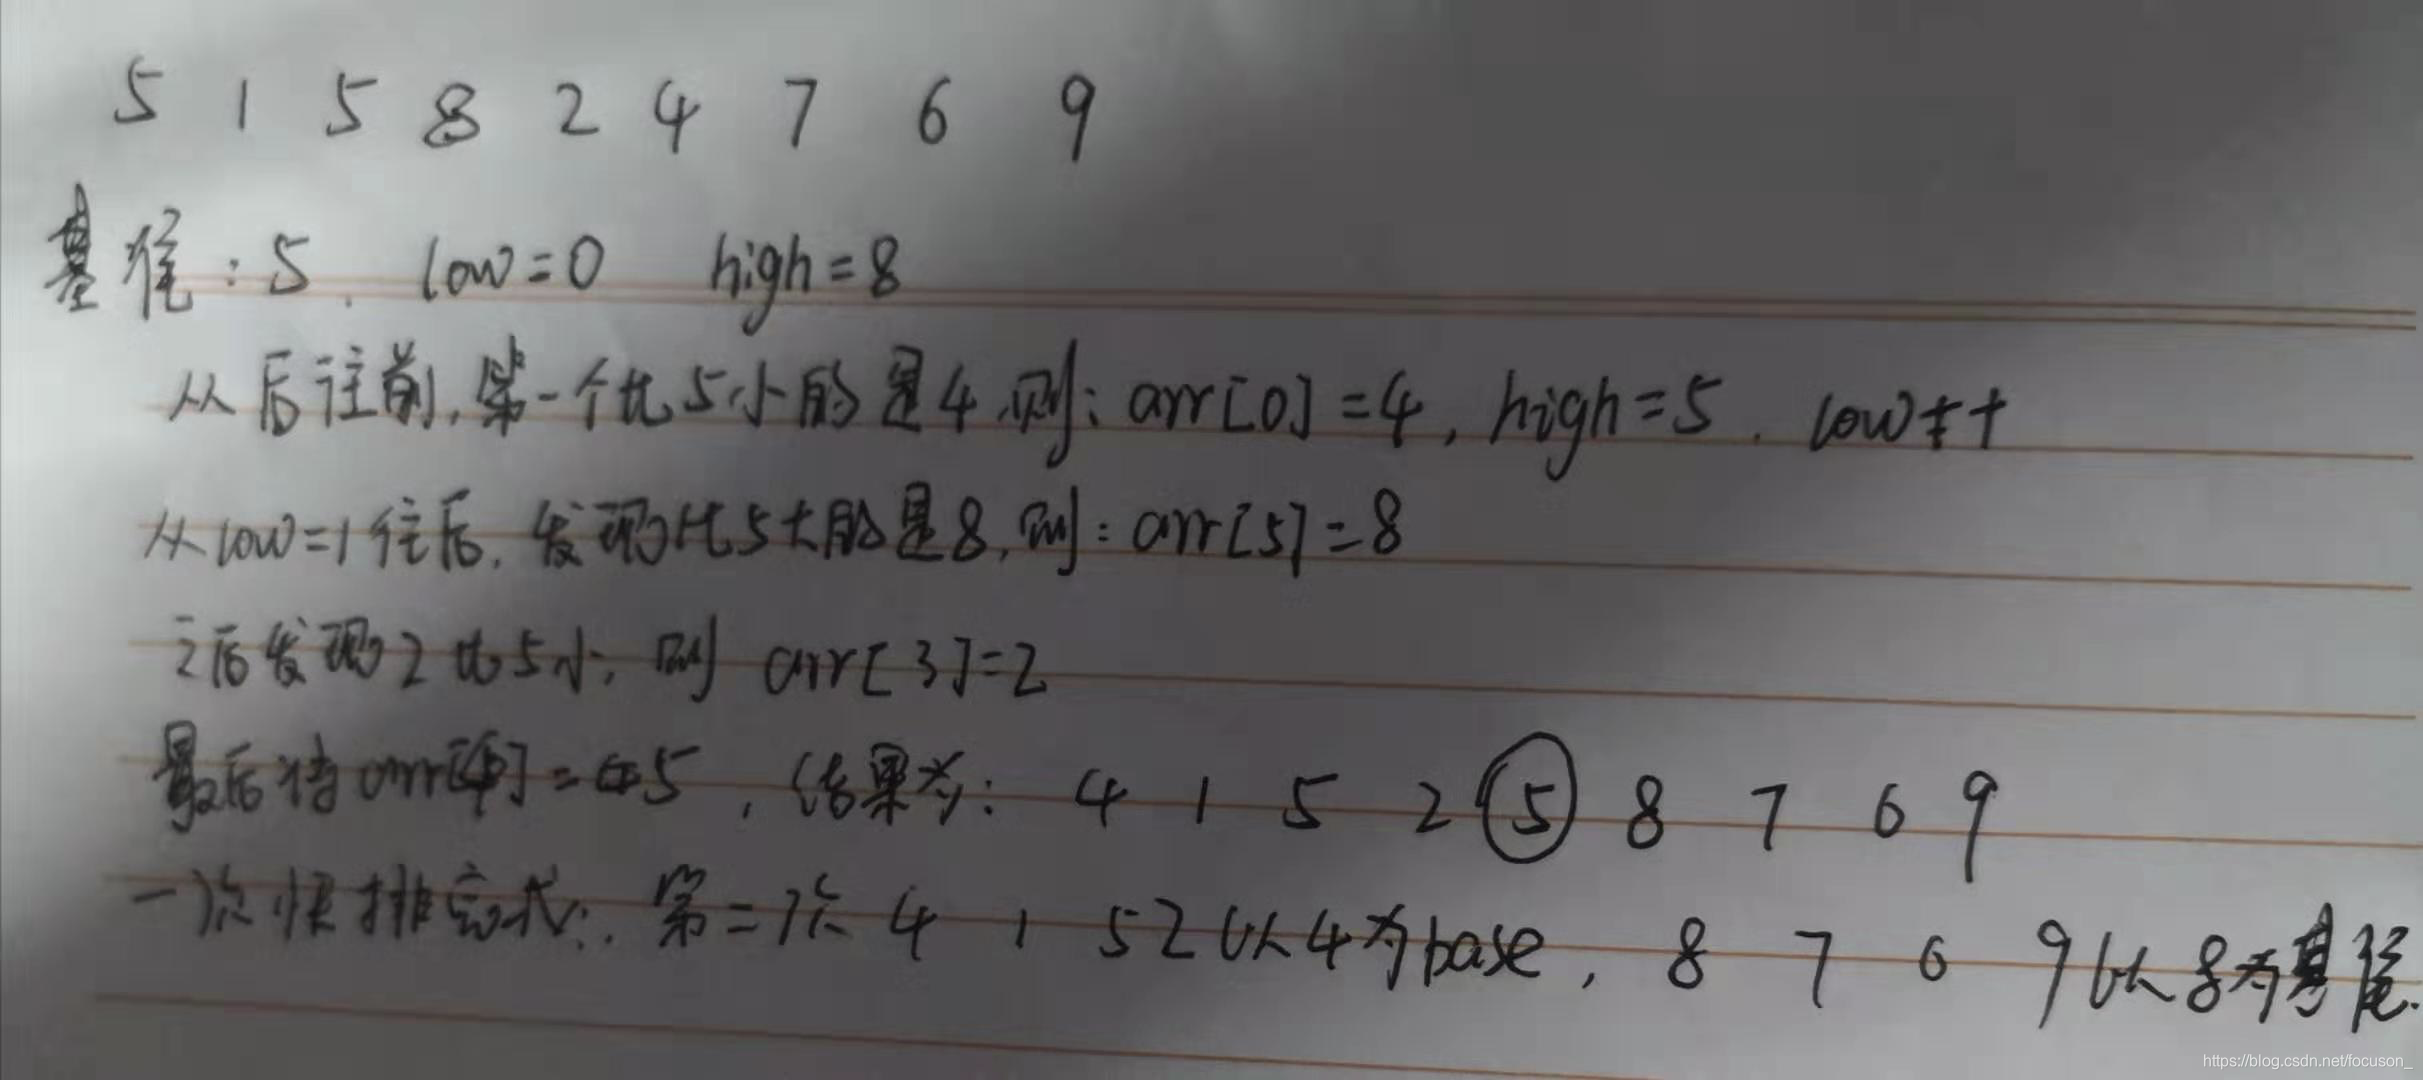 5 1 5 8 2 4 7 6 9
基准:5. low=0 high=8
从后往前,第一个比5小的是4,则: arr[0]=4, high=5. low++
从low=1往后,发现比5大的是8,则: arr[5]=8
之后发现2比5小,则 arr[3]=2
最后将arr[4]=5,结果为: 4 1 5 2 5 8 7 6 9
一次快排完成;.第二次 4 1 5 2 以4为base, 8 7 6 9 以8为基准.
https://blog.csdn.net/focuson_